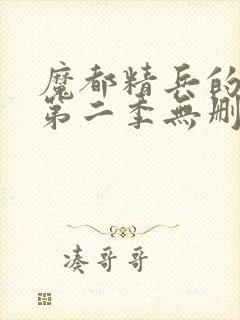 魔都精兵的
第二季無删
凑哥哥